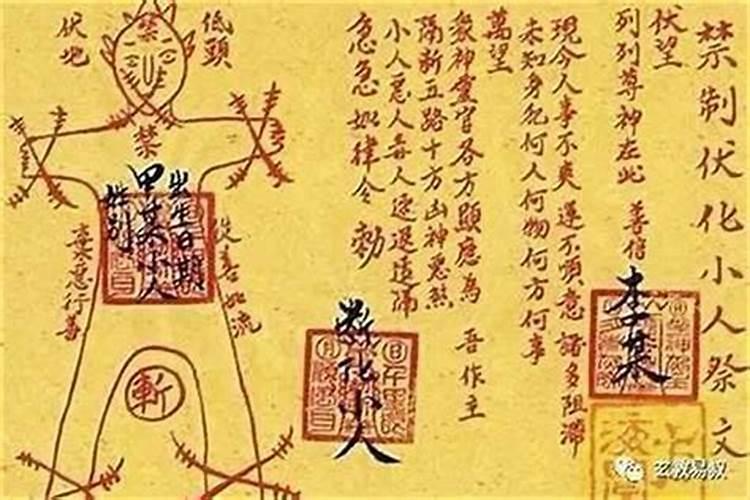 禁制伏化小人祭文
伏望
列列尊神在此 善信
李某
現今人事不爽運不順意諸多阻滯
未知身犯何人何物何方何事
萬望
眾神靈官各方顯應為 吾作主
隔斷五路十方凶神惡煞
小人惡人毒人速退遠歸
急急如律令 勅
斷化小人
低頭
伏地
禁
禁
出生日期
甲某小人
性別
從善如流
棄惡行善
斬
玄教易教